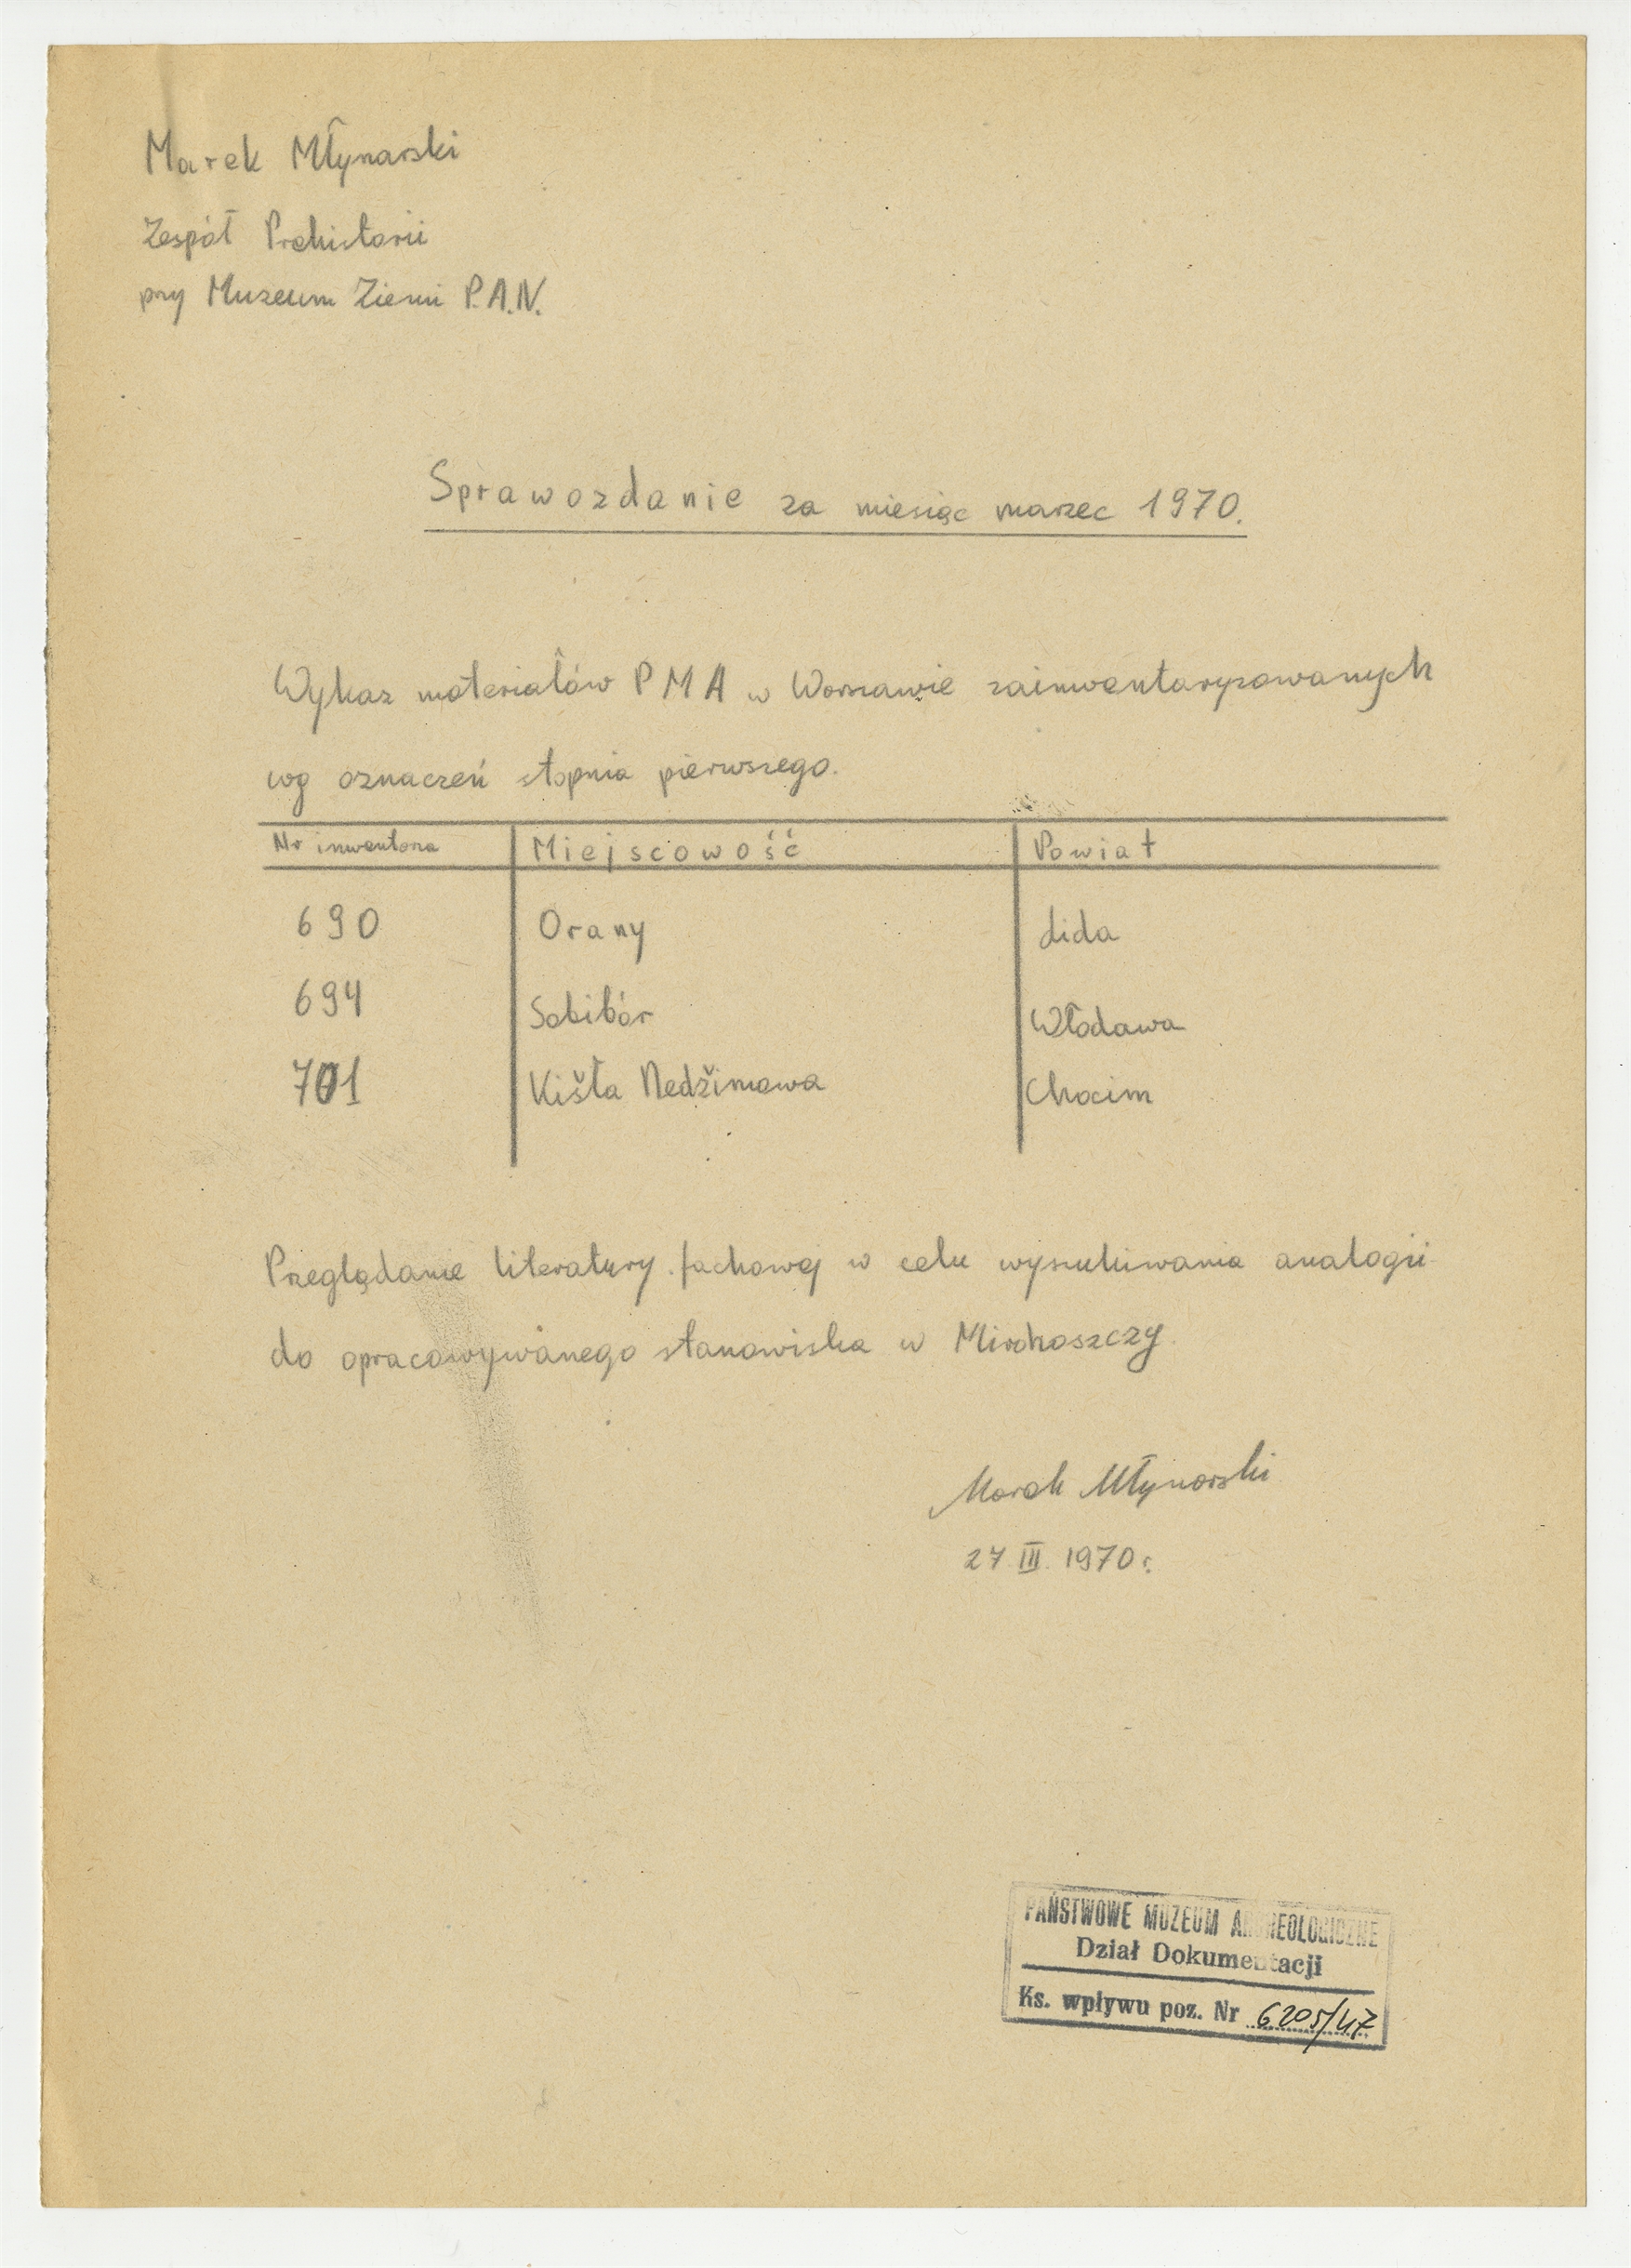 Marek Młynarski
Zespół Prehistorii
przy Muzeum Ziemi P.A.N.
Sprawozdanie za miesiąc marzec 1970.
Wykaz materiałów PMA w Warszawie zainwentaryzowanych
wg oznaczeń stopnia pierwszego.
Nr inwentarza Miejscowość Powiat
690 Orany Lida
694 Sobibór Włodawa
701 Kišła Nedžimowa Chocim
Przeglądanie literatury fachowej w celu wyszukiwania analogii
do opracowywanego stanowiska w Mirohoszczy.
Marek Młynarski
27 III 1970 r.
PAŃSTWOWE MUZEUM ARCHEOLOGICZNE
Dział Dokumentacji
Ks. wpływu poz. Nr 6205/47